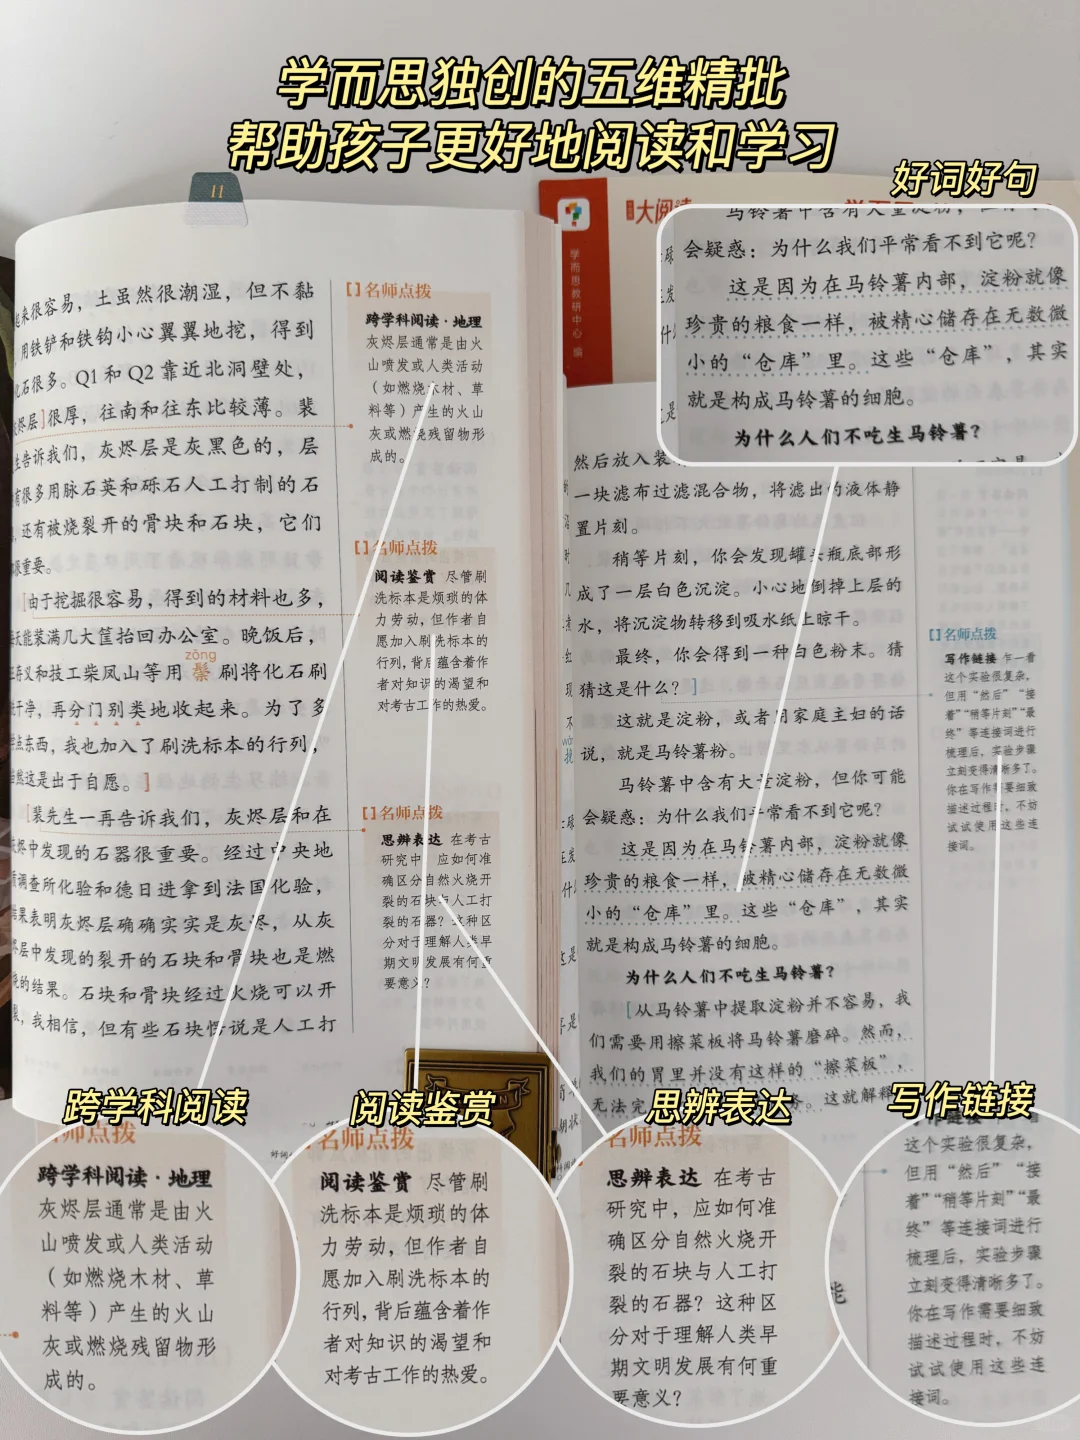 学而思独创的五维精批
帮助孩子更好地阅读和学习
好词好句
11
起来很容易，土虽然很潮湿，但不黏
用铁铲和铁钩小心翼翼地挖，得到
化石很多。Q1和Q2靠近北洞壁处，
灰烬层]很厚，往南和往东比较薄。裴
生告诉我们，灰烬层是灰黑色的，层
有很多用脉石英和砾石人工打制的石
，还有被烧裂开的骨块和石块，它们
很重要。
[由于挖掘很容易，得到的材料也多，
天能装满几大筐抬回办公室。晚饭后，
zōng
寿义和技工柴凤山等用鬃刷将化石刷
干净，再分门别类地收起来。为了多
学点东西，我也加入了刷洗标本的行列，
当然这是出于自愿。]
[裴先生一再告诉我们，灰烬层和在
灰烬中发现的石器很重要。经过中央地
质调查所化验和德日进拿到法国化验，
结果表明灰烬层确确实实是灰烬，从灰
烬层中发现的裂开的石块和骨块也是燃
烧的结果。石块和骨块经过火烧可以开
裂，我相信，但有些石块愣说是人工打
[]名师点拨
跨学科阅读·地理
灰烬层通常是由火
山喷发或人类活动
（如燃烧木材、草
料等）产生的火山
灰或燃烧残留物形
成的。
[]名师点拨
阅读鉴赏 尽管刷
洗标本是烦琐的体
力劳动，但作者自
愿加入刷洗标本的
行列，背后蕴含着作
者对知识的渴望和
对考古工作的热爱。
[]名师点拨
思辨表达 在考古
研究中，应如何准
确区分自然火烧开
裂的石块与人工打
裂的石器？这种区
分对于理解人类早
期文明发展有何重
要意义？
大阅读
学而思教研中心 编
马铃薯中含有大量淀粉，但你
会疑惑：为什么我们平常看不到它呢？
这是因为在马铃薯内部，淀粉就像
珍贵的粮食一样，被精心储存在无数微
小的“仓库”里。这些“仓库”，其实
就是构成马铃薯的细胞。
为什么人们不吃生马铃薯？
然后放入装
一块滤布过滤混合物，将滤出的液体静
置片刻。
稍等片刻，你会发现罐头瓶底部形
成了一层白色沉淀。小心地倒掉上层的
水，将沉淀物转移到吸水纸上晾干。
最终，你会得到一种白色粉末。猜
猜这是什么？]
这就是淀粉，或者用家庭主妇的话
说，就是马铃薯粉。
马铃薯中含有大量淀粉，但你可能
会疑惑：为什么我们平常看不到它呢？
这是因为在马铃薯内部，淀粉就像
珍贵的粮食一样，被精心储存在无数微
小的“仓库”里。这些“仓库”，其实
就是构成马铃薯的细胞。
为什么人们不吃生马铃薯？
[从马铃薯中提取淀粉并不容易，我
们需要用擦菜板将马铃薯磨碎。然而，
我们的胃里并没有这样的“擦菜板”，
无法完
。这就解释
[]名师点拨
写作链接 乍一看
这个实验很复杂，
但用“然后”“接
着”“稍等片刻”“最
终”等连接词进行
梳理后，实验步骤
立刻变得清晰多了。
你在写作需要细致
描述过程时，不妨
试试使用这些连
接词。
跨学科阅读
阅读鉴赏
思辨表达
写作链接
名师点拨
跨学科阅读·地理
灰烬层通常是由火
山喷发或人类活动
（如燃烧木材、草
料等）产生的火山
灰或燃烧残留物形
成的。
名师点拨
阅读鉴赏 尽管刷
洗标本是烦琐的体
力劳动，但作者自
愿加入刷洗标本的
行列，背后蕴含着作
者对知识的渴望和
对考古工作的热爱。
名师点拨
思辨表达 在考古
研究中，应如何准
确区分自然火烧开
裂的石块与人工打
裂的石器？这种区
分对于理解人类早
期文明发展有何重
要意义？
写作链接
这个实验很复杂，
但用“然后”“接
着”“稍等片刻”“最
终”等连接词进行
梳理后，实验步骤
立刻变得清晰多了。
你在写作需要细致
描述过程时，不妨
试试使用这些连
接词。